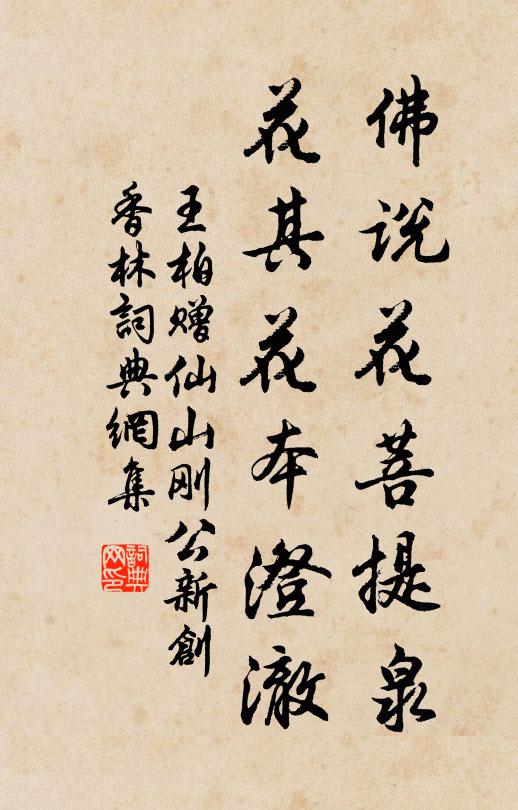 佛说花菩提泉
花其花本澄澈
王柏赠仙山刚公新創
香林詞典網集
詞典网印